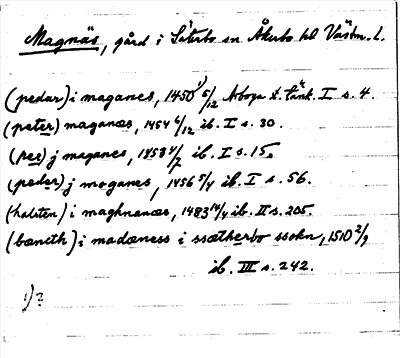 Magnäs, gård i Säterbo sn Åkerbo hd Västm. l.
(pedar) i maganes, 1450 1) 5/12 Arboga t. tänk. I s. 4.
(pater) maganæs, 1454 6/12 ib. I s. 30.
(per) j maganes, 1453 4/7 ib. I s. 15.
(peder) j moganes, 1456 5/4 ib. I s. 56.
(halsten) i maghnanæs, 1483 14/4 ib. II s. 205.
(bæncth) i madæness i ssætherbo ssokn, 1510 2/9
ib. III s. 242.
1) ?